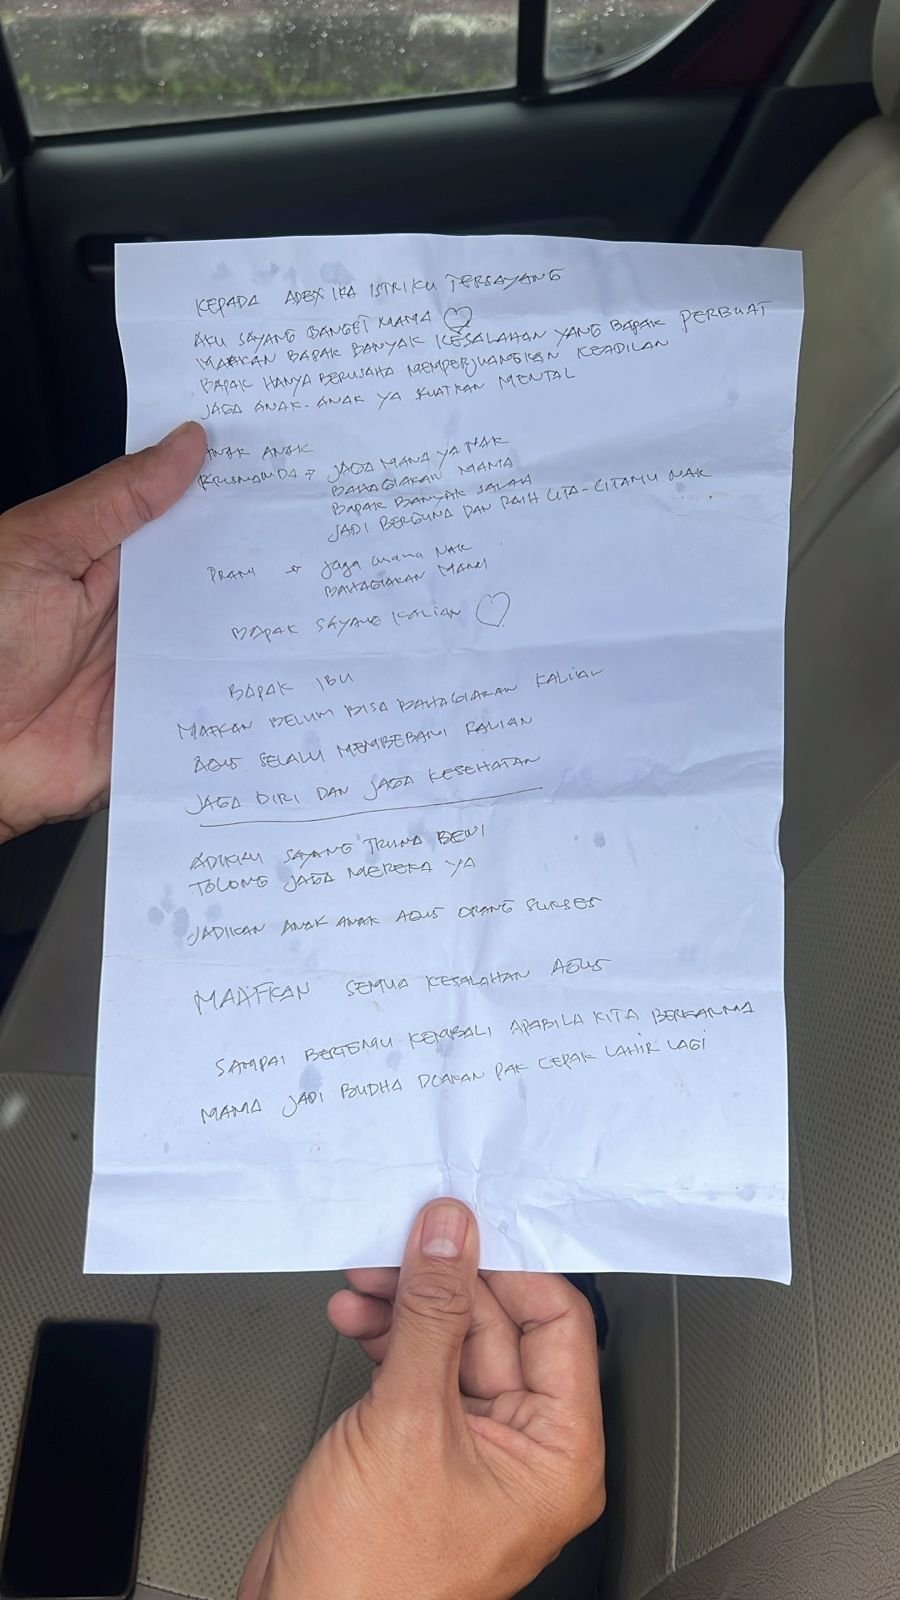 KEPADA ADEX IKA ISTRIKU TERSAYANG
AKU SAYANG BANGET MAMA
MAAFKAN BAPAK BANYAK KESALAHAN YANG BAPAK PERBUAT
BAPAK HANYA BERUSAHA MEMPERJUANGKAN KEADILAN
JAGA ANAK-ANAK YA KUATKAN MENTAL
ANAK ANAK
→ JAGA MAMA YA NAK
BAHAGIAKAN MAMA
BAPAK BANYAK SALAH
JADI BERGUNA DAN RAIH CITA-CITAMU NAK
→ Jaga mama NAK
BAHAGIAKAN MAMA
BAPAK SAYANG KALIAN
BAPAK IBU
MAFKAN BELUM BISA BAHAGIAKAN KALIAN
AGUS SELALU MEMBEBANI KALIAN
JAGA DIRI DAN JAGA KESEHATAN
ADIKKU SAYANG TRUNA DEWI
TOLONG JAGA MEREKA YA
JADIKAN ANAK ANAK AGUS ORANG SUKSES
MAAFKAN SEMUA KESALAHAN AGUS
SAMPAI BERTEMU KEMBALI APABILA KITA BERKARMA
MAMA JADI BUDHA DOAKAN PAK CEPAK LAHIR LAGI